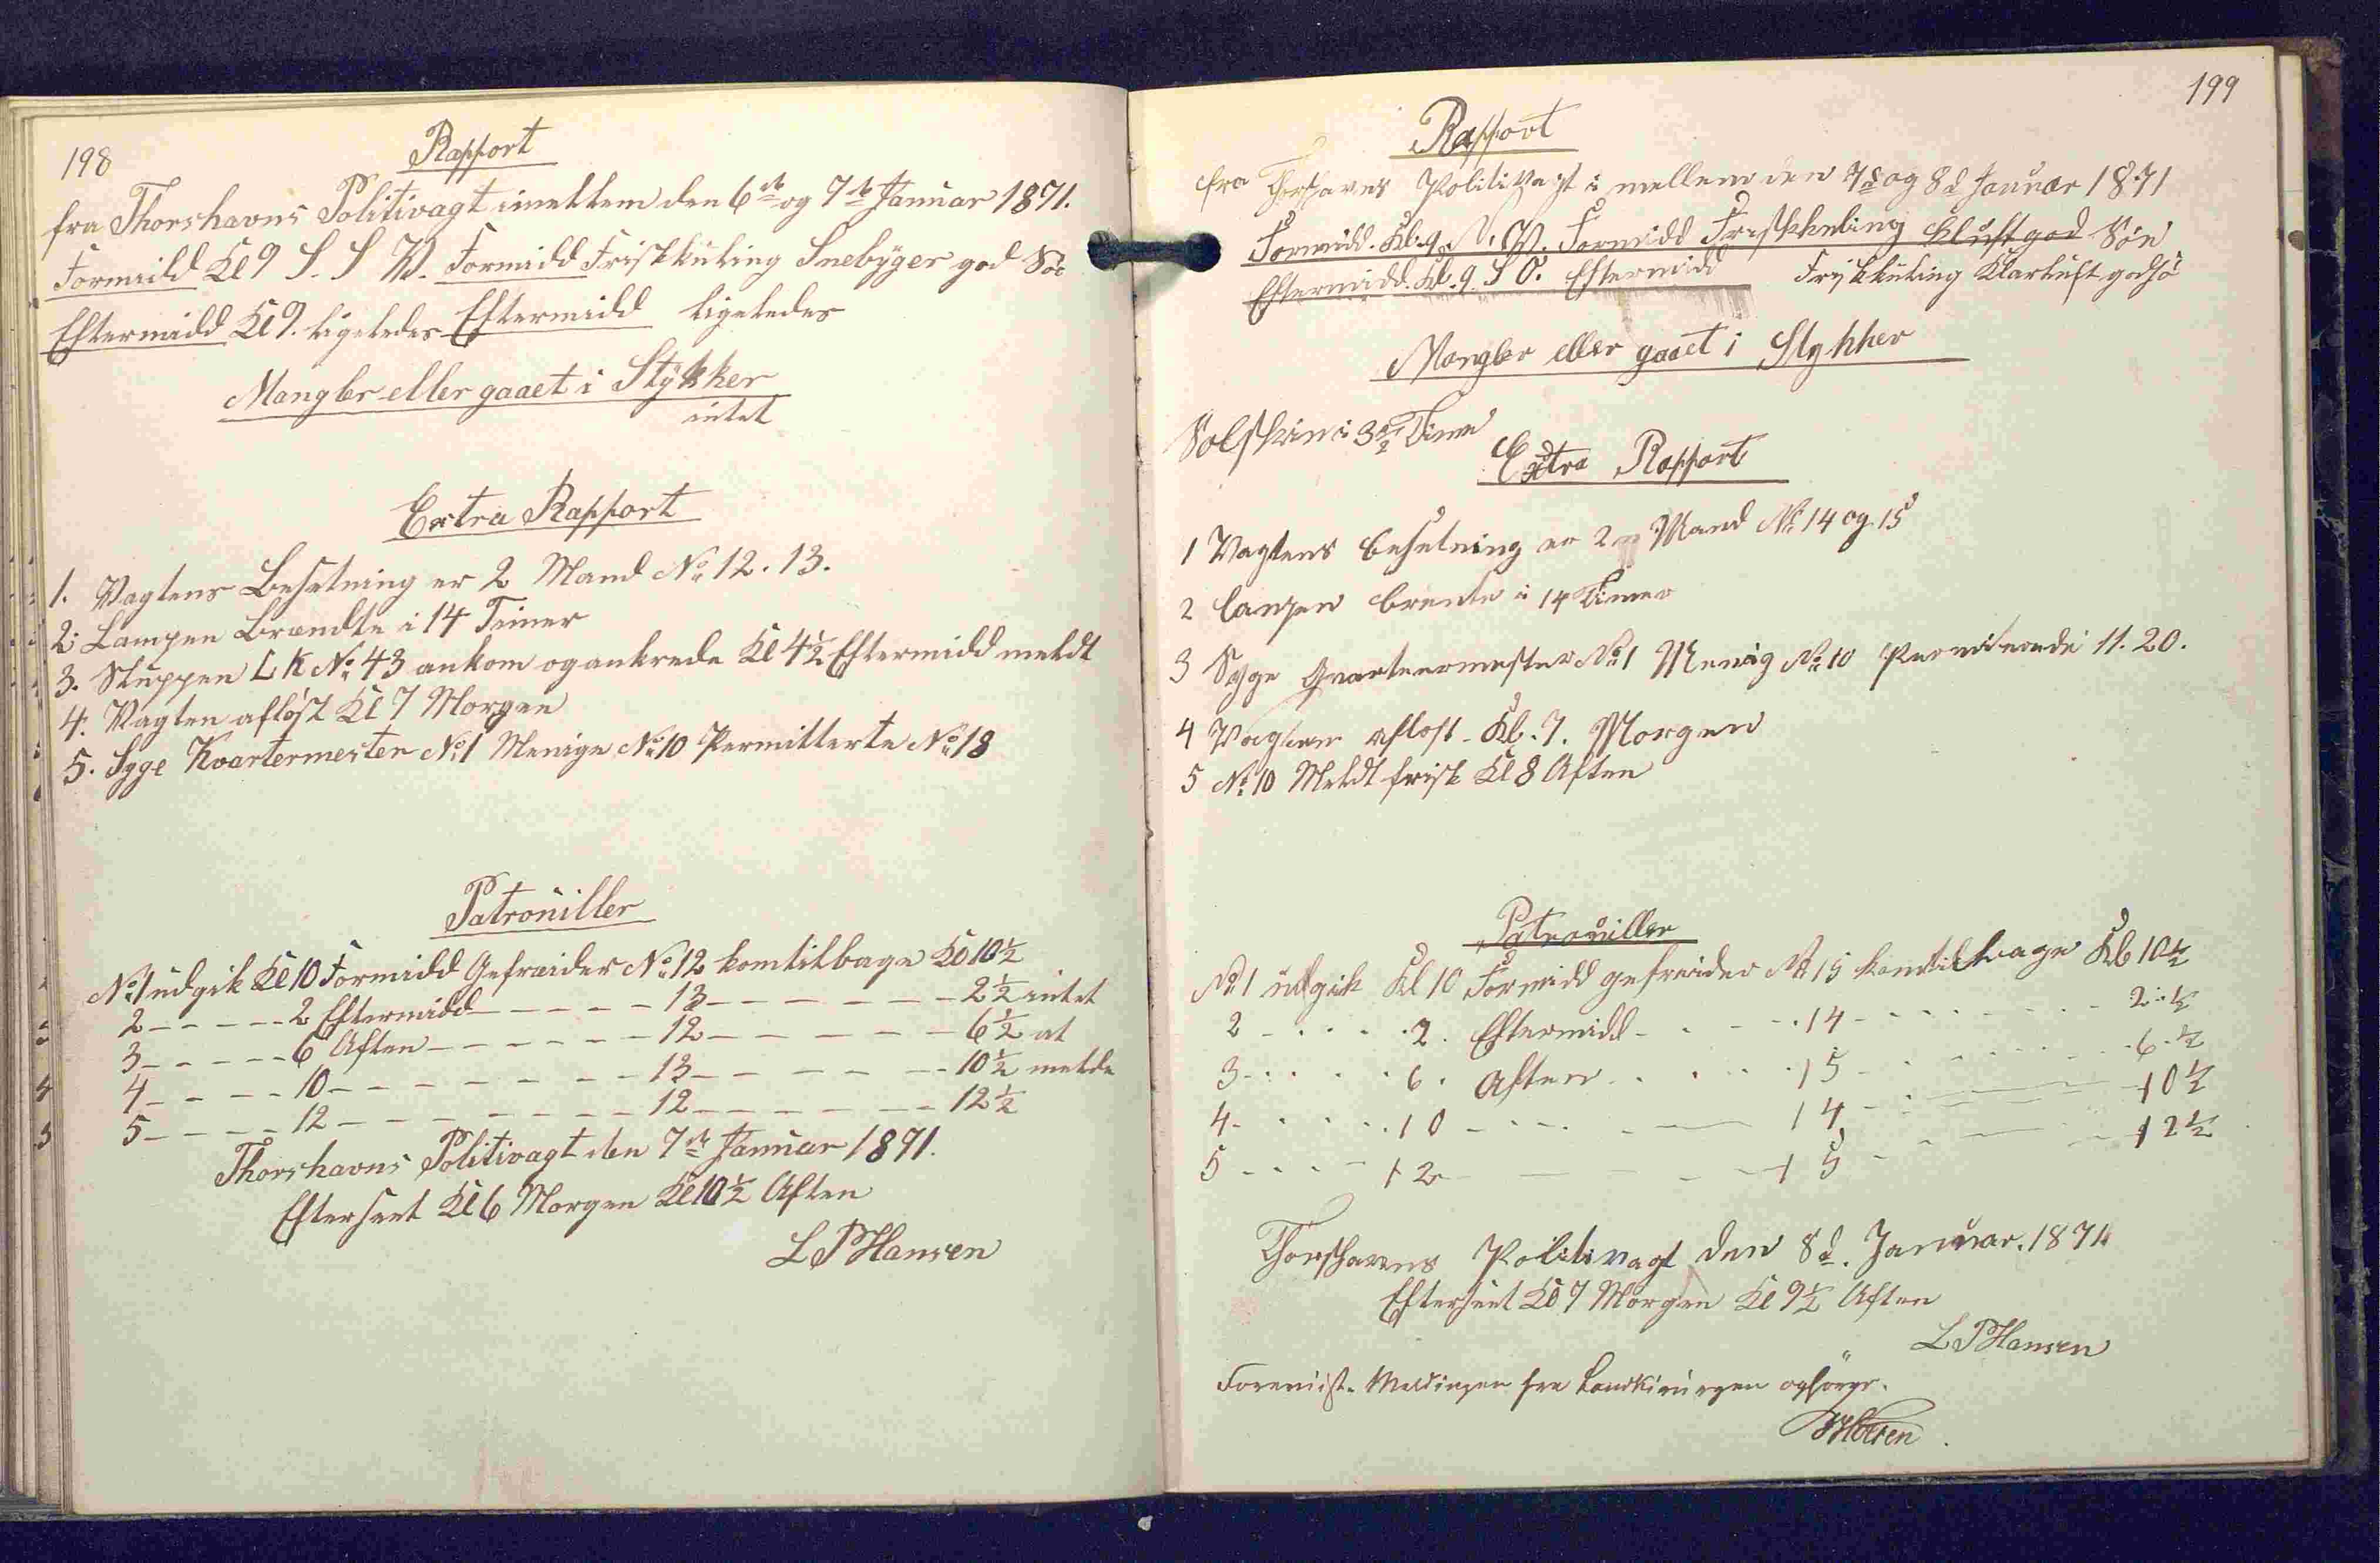 198
Rapport
fra Thorshavns Politivagt imellem den 6te og 7de Januar 1871.
Formidd Kl 9 S. S W. Formidd Friskkuling Snebyger god Sø
Eftermidd Kl 9. ligeledes Eftermidd ligeledes
Mangler eller gaaet i Stykker
intet
Extra Rapport
1. Vagtens Besetning er 2 Mand No 12. 13.
2. Lampen Brændte i 14 Timer
3. Sluppen L K No 43 ankom og ankrede Kl 4½ Eftermidd meldt
4. Vagten afløst Kl 7 Morgen
5. Syge Kvartermester No 1 Menige No 10 Permitterte No 18
Patrouiller
No 1 udgik Kl 10 Formidd Gefreider No 12 kom tilbage Kl 10½
2 - - - - - 2 Eftermidd - - - - - 13 - - - - - - - 2½ intet
3 - - - - - 6 Aften - - - - - - - 12 - - - - - - - 6½ at
4 - - - - 10 - - - - - - - - 13 - - - - - - - 10½ melde
5 - - - - 12 - - - - - - - - 12 - - - - - - - 12½
Thorshavns Politivagt den 7de Januar 1871.
Efterseet Kl 6 Morgen Kl 10½ Aften
L P Hansen
199
Rapport
fra Thorshavns Politivagt i mellem den 7d og 8d Januar 1871
Formidd. Kl. 9. N. W. Formidd Friskkuling Kluft god Søe
Eftermidd. Kl. 9. S O. Eftermidd Friskkuling Klarluft god Sø
Mangler eller gaaet i Stykker
Solskin i 3½ Time
Extra Rapport
1 Vagtens Besetning er 2 Mand No 14 og 15
2 Lampen brente i 14 Timer
3 Syge Qvarteermester No 1 Menig No 10 11. 20.
4 Vagten afløst Kl. 7. Morgen
5 No 10 Meldt frisk Kl 8 Aften
Patrouiller
No 1 udgik Kl 10 Formidd gefreider No 15 kom tilbage Kl 10½
2 - - - - 2. Eftermidd - - - - 14 - - - - - - - 2½
3 - - - - 6. Aften - - - - 15 - - - - - - 6½
4 - - - - 10 - - - - - - 14 - - - - - - 10½
5 - - - - 12 - - - - - - 15 - - - - - - 12½
Thorshavns Politivagt den 8d. Januar. 1871
Efterseet Kl 7 Morgen Kl 9½ Aften
L P Hansen
Foreviist. Meldingen fra Landkirurgen